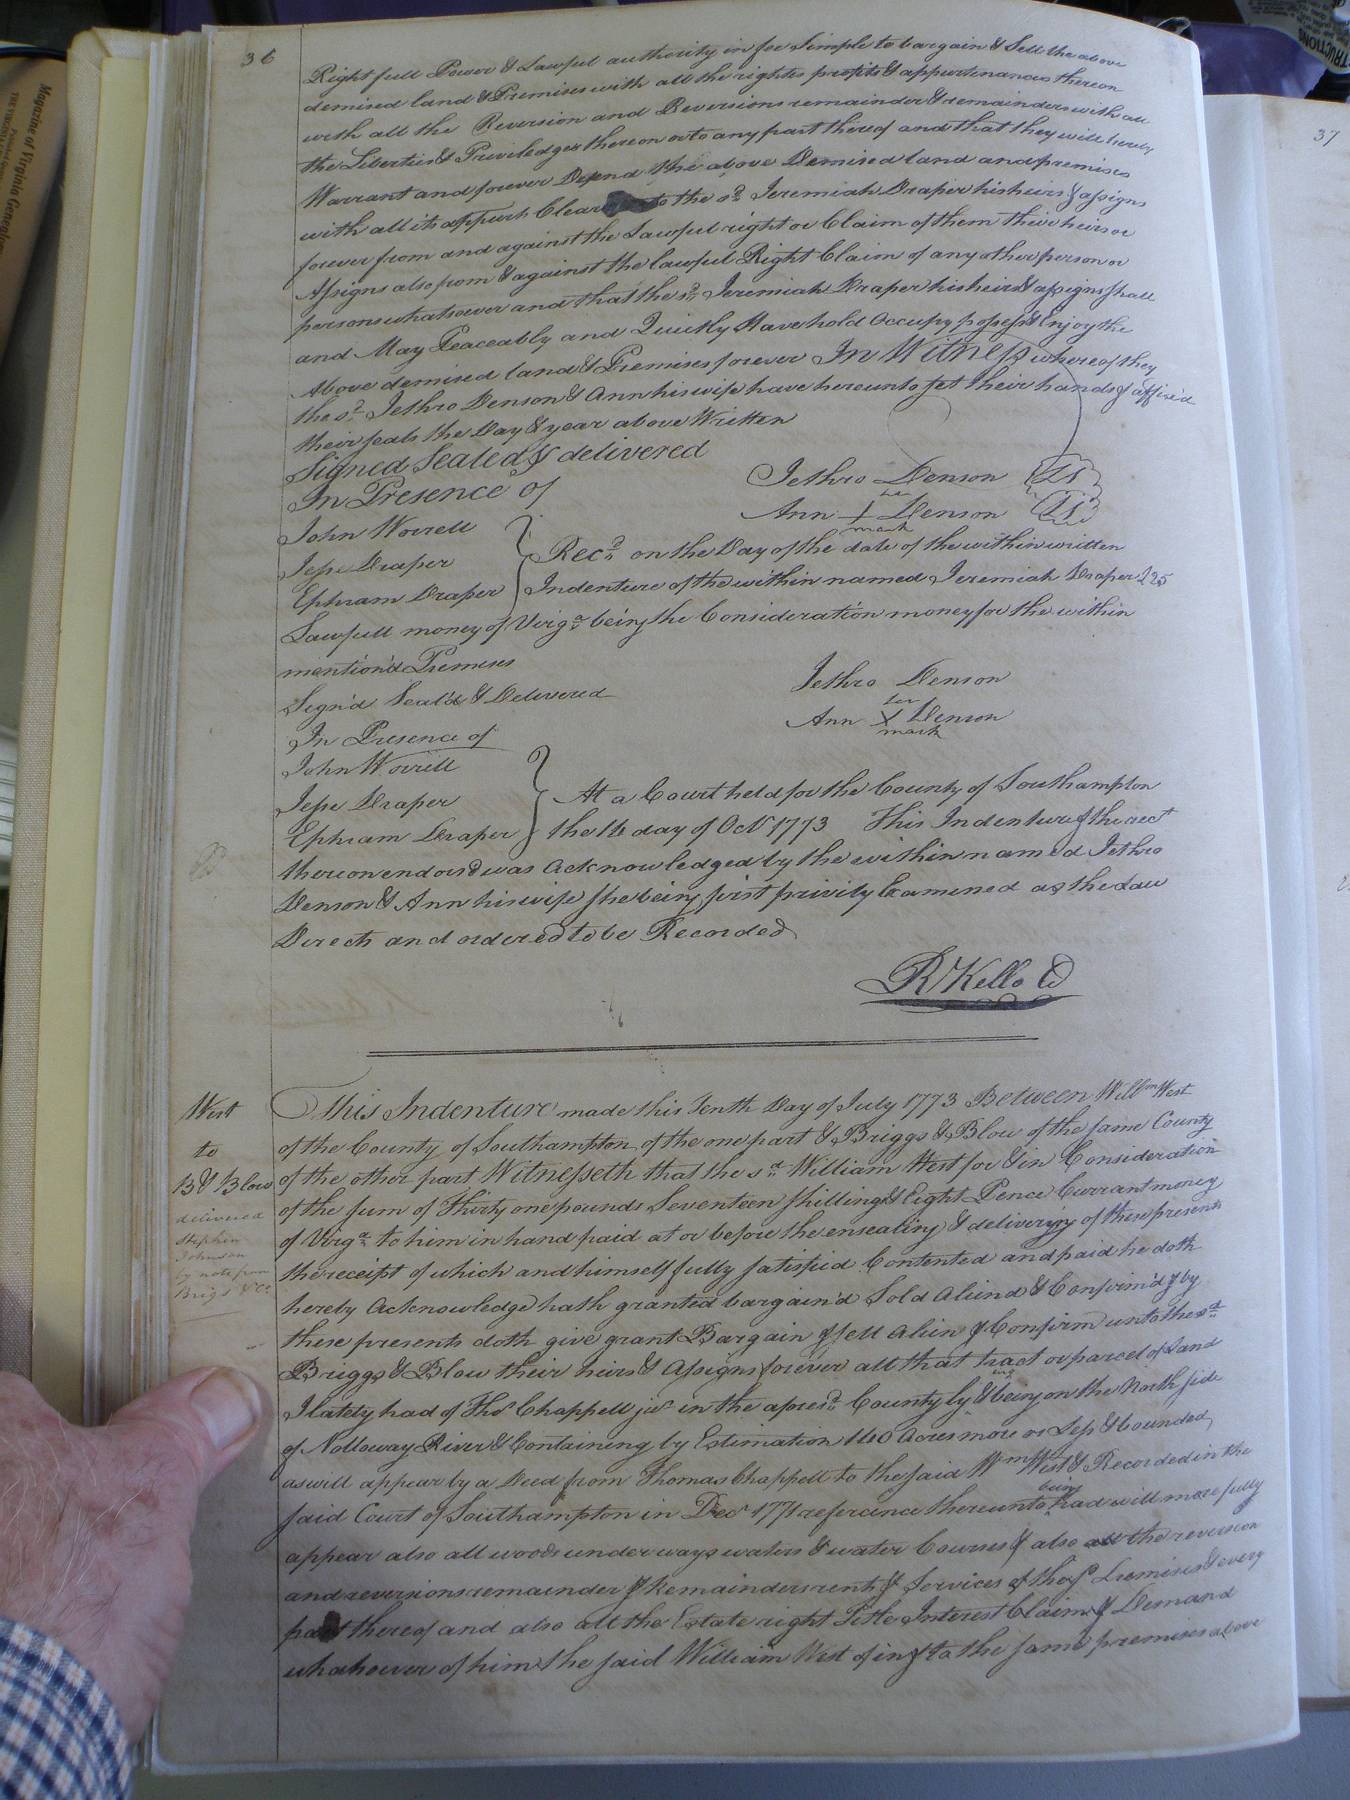 36
Right full Power & Lawful authority in fee Simple to bargain & Sell the above
demised land & Premises with all the rights profits & appurtenances thereon
with all the Reversion and Reversions remainder & remainders with all
the Liberties & Priviledges thereon or to any part thereof and that they will hereby
Warrant and forever Defend the above Demised land and premises
with all its appurts Clear to the sd. Jeremiah Draper his heirs & assigns
forever from and against the Lawful right or Claim of them their heirs or
Assigns also from & against the lawful Right Claim of any other person or
persons whatsoever and that the sd. Jeremiah Draper his heirs & assigns shall
and May Peaceably and Quietly Have hold Occupy possess & Enjoy the
Above demised land & Premises forever In Witness whereof they
the sd. Jethro Denson & Ann his wife have hereunto set their hands & affixed
their seals the Day & year above Written
Signed Sealed & delivered
In Presence of
Jethro Denson LS
her
Ann + Denson LS
mark
John Worrell
Jesse Draper
Ephram Draper
Recd. on the Day of the date of the within written
Indenture of the within named Jeremiah Draper £25
Lawfull money of Virga. being the Consideration money for the within
mention'd Premises
Sign'd Seal'd & Delivered
In Presence of
Jethro Denson
her
Ann X Denson
mark
John Worrell
Jesse Draper
Ephram Draper
At a Court held for the County of Southampton
the 14 day of Octr 1773 This Indenture & the rect
thereon endors'd was Acknowledged by the within named Jethro
Denson & Ann his wife she being first privily Examened as the Law
Directs and ordered to be Recorded
R Kello Cl
West
to
B & Blow
delivered
Stephen
Johnson
by note from
Brigs & Co.
This Indenture made this Tenth Day of July 1773 Between Willm West
of the County of Southampton of the one part & Briggs & Blow of the same County
of the other part Witnesseth that the sd. William West for & in Consideration
of the sum of Thirty one pounds Seventeen shillings & Eight Pence Currant money
of Virga. to him in hand paid at or before the ensealing & delivery of these presents
the receipt of which and himself fully satisfied Contented and paid he doth
hereby Acknowledge hath granted bargain'd Sold Aliend & Confirm'd & by
these presents doth give grant Bargain & sell Alien & Confirm unto the sd.
Briggs & Blow their heirs & Assigns forever all that tract or parcel of Land
I lately had of Thos. Chappell jur in the aforesd. County ly & being on the North side
ing
of Nottoway River & Containing by Estimation 140 Acres more or Less & bounded
as will appear by a Deed from Thomas Chappell to the said Wm West & Recorded in the
said Court of Southampton in Decr 1771 referance thereunto had will more fully
being
appear also all woods under ways waters & water Courses & also all the reversion
and reversions remainder & Remainders rents & Services of the sd Premises & every
part thereof and also all the Estate right Title Interest Claim & Demand
whatsoever of him the said William West of in & to the same premises above
37